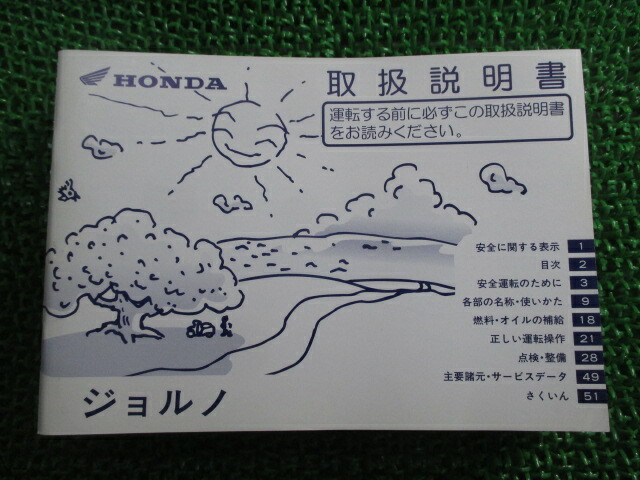 HONDA
取扱説明書
運転する前に必ずこの取扱説明書
をお読みください。
安全に関する表示 1
目次 2
安全運転のために 3
各部の名称・使いかた 9
燃料・オイルの補給 18
正しい運転操作 21
点検・整備 28
主要諸元・サービスデータ 49
さくいん 51
ジョルノ